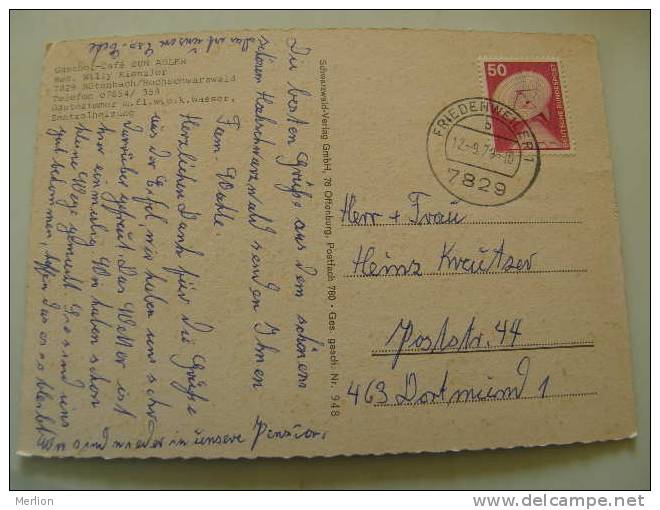 Gasthof-Café ZUM ADLER
Bes. Willy Kienzler
7829 Rötenbach/Hochschwarzwald
Telefon 07654/ 359
Gästezimmer m.fl.w.u.k.Wasser,
Zentralheizung
Die besten Grüße aus dem schönen
schönen Hochschwarzwald senden Ihnen
Fam.
Herzlichen Dank für die Grüße
aus der Eifel, wir haben uns sehr
darüber gefreut. Das Wetter ist
hier einmalig. Wir haben schon
kleine Wege gemacht. Sie sind uns
gut bekommen, hoffen das es so bleibt.
Wir sind wieder in unsere Pension,
das ist unsere
Schwarzwald-Verlag GmbH, 76 Offenburg, Postfach 780 • Ges. gesch. Nr. 948
50
DEUTSCHE BUNDESPOST
FRIEDENWEILER 1
b
12.-9.79-10
7829
Herr + Frau
Heinz Kreutzer
Poststr. 44
463 Dortmund 1
Merlion
www.delcampe.net